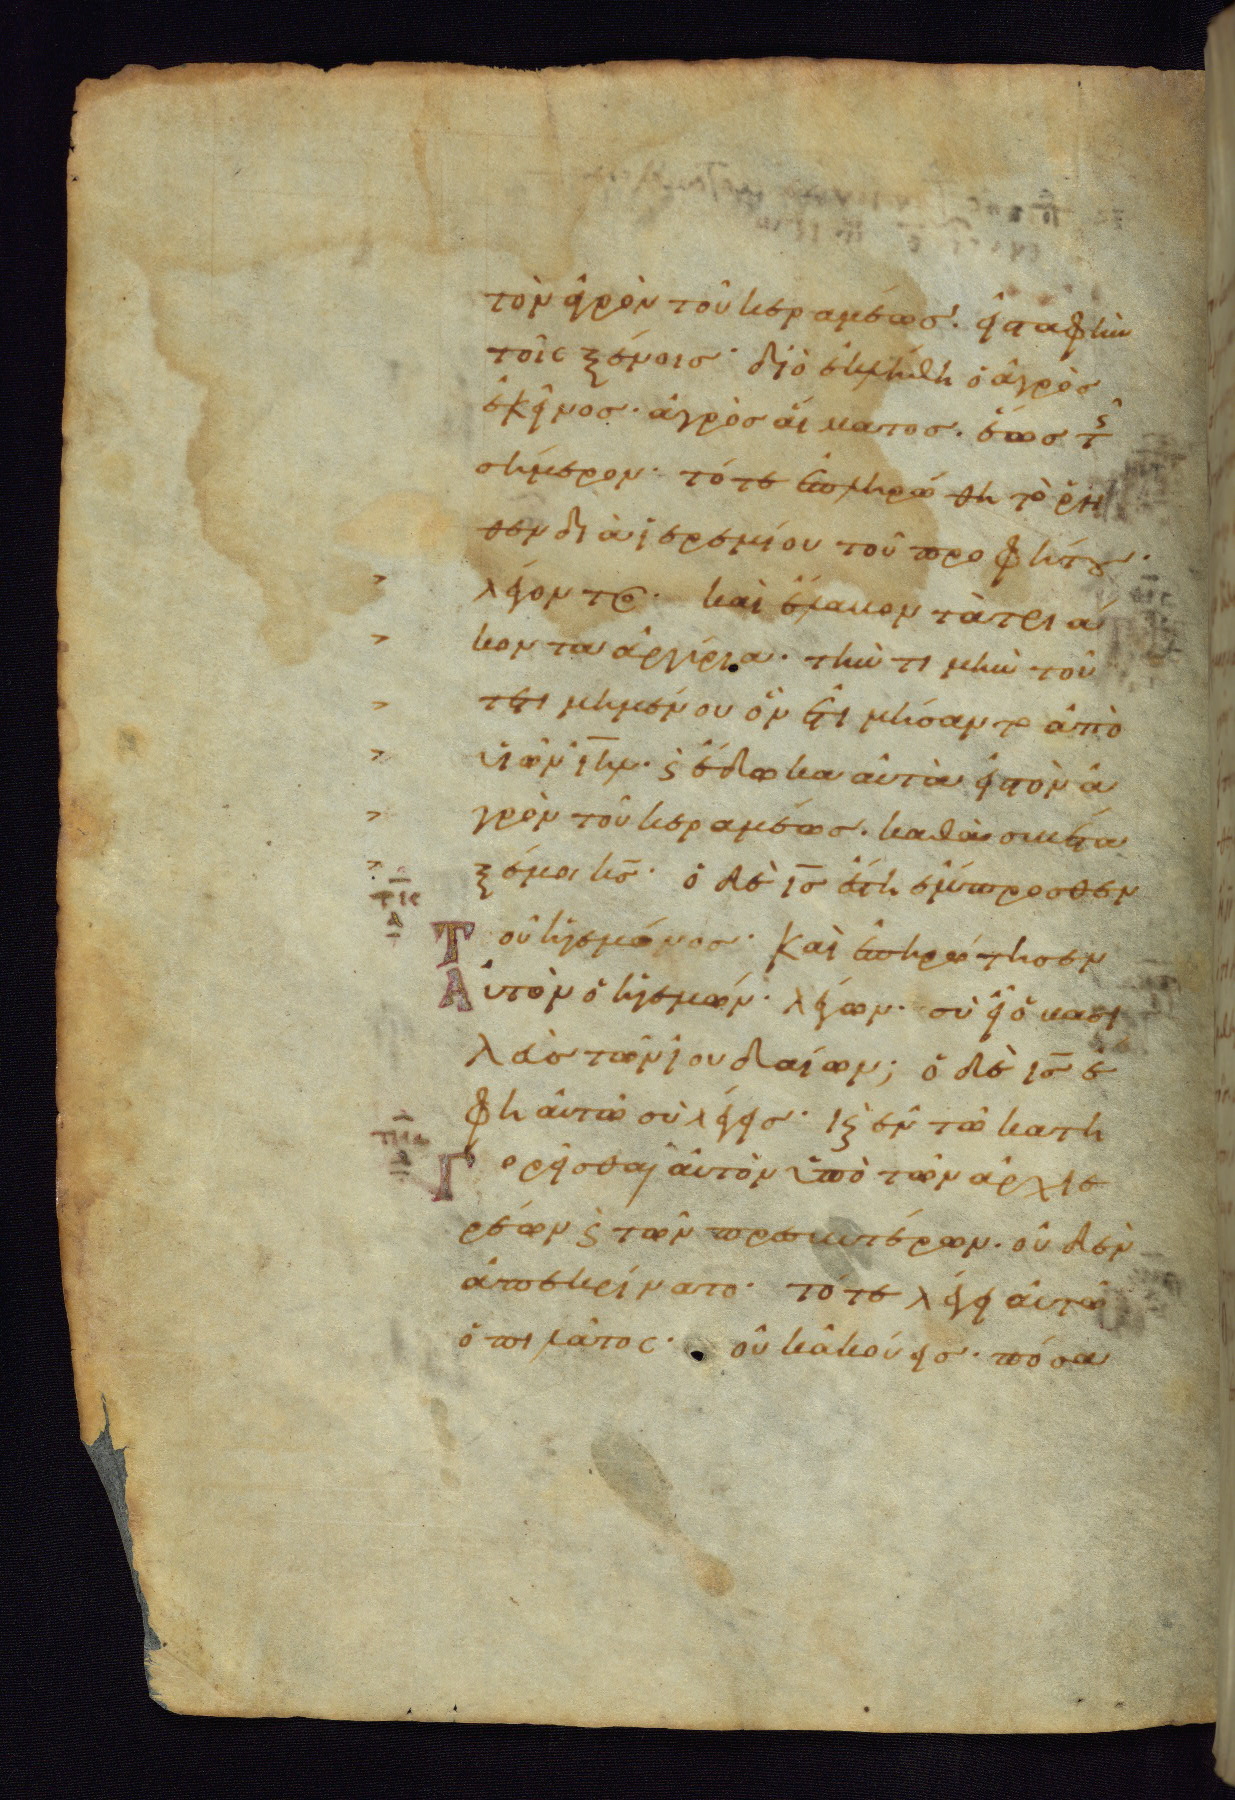 τὸν ἀγρὸν τοῦ κεραμέως· εἰς ταφὴν
τοῖς ξένοις· διὸ ἐκλήθη ὁ ἀγρὸς
ἐκεῖνος· ἀγρὸς αἵματος· ἕως τῆς
σήμερον· τότε ἐπληρώθη τὸ ῥη
θὲν διὰ ἱερεμίου τοῦ προφήτου·
λέγοντος· καὶ ἔλαβον τὰ τριά
κοντα ἀργύρια· τὴν τιμὴν τοῦ
τετιμημένου ὃν ἐτιμήσαντο ἀπὸ
υἱῶν ιηλ· ϛ ἔδωκα αὐτὰ εἰς τὸν ἀ
γρὸν τοῦ κεραμέως· καθὰ συνέτα
ξέ μοι κς· ὁ δὲ ις ἔστη ἔμπροσθεν
τιϛ
α
Τοῦ ἡγεμόνος· καὶ ἐπηρώτησεν
Αὐτὸν ὁ ἡγεμών· λέγων· σὺ εἶ ὁ βασι
λεὺς τῶν ἰουδαίων; ὁ δὲ ις ἔ
φη αὐτῶ σὺ λέγεις· ϗ ἐν τῶ κατη
Γορεῖσθαι αὐτὸν ὑπὸ τῶν ἀρχιε
ρέων ϛ τῶν πρεσβυτέρων· οὐδὲν
ἀπεκρίνατο· τότε λέγει αὐτῶ
ὁ πιλάτος· οὐκ ἀκούεις· πόσα